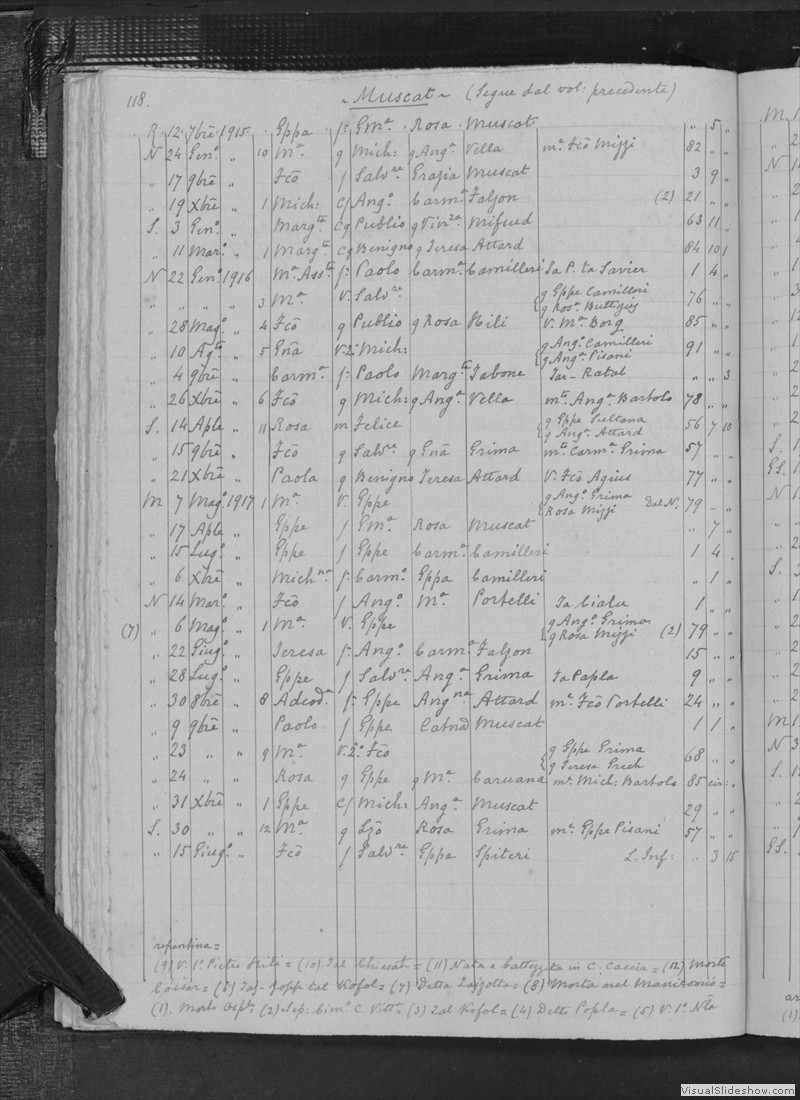 118. ~ Muscat ~ (Segue dal vol: precedente)
R. 12. 7bre 1915 . Gppa f: Gma. Rosa Muscat " 5 "
N 24 Geno. " 10 Ma. g Mich: g Anga. Vella ma. Fcõ Mizzi 82 " "
" 17 9bre " Fcõ f Salvre Grazia Muscat 3 9 "
" 19 Xbre " 1 Mich: cf Ango. Carma. Falzon (2) 21 " "
S. 3 Geno. " Margta cg Publio g Vinza Mifsud 63 11 "
" 11 Maro. " 1 Margta cg Benigno g Teresa Attard 84 10 1
N 22 Geno. 1916 Ma. Assta f: Paolo Carma. Camilleri Ta P. ta Savier 1 4 "
" " " " 3 Ma. V. Salvre { g Gppe Camilleri 76 " "
{ g Rosa. Buttigieg
" 28 Mago. " 4 Fcõ g Publio g Rosa Hili V. Ma. Borg 85 " "
" 10 Agto " 5 Gña V. 2o. Mich: { g Ango. Camilleri 91 " "
{ g Anga. Pisani
" 4 9bre " Carma. f: Paolo Margta Tabone Tar-Ratal " " 3
" 26 Xbre " 6 Fcõ g Mich: g Anga. Vella mto Anga. Bartolo 78 " "
S. 14 Aple " 11 Rosa m Felice { g Gppe Sultana 56 7 10
{ g Anga. Attard
" 15 9bre " Fcõ g Salvre g Gña Grima mto Carma. Grima 57 " "
" 21 Xbre " Paola g Benigno Teresa Attard V. Fcõ Agius 77 " "
M 7 Mago. 1917 1 Ma. V. Gppe { g Ango. Grima Dal N. 79 " "
{ Rosa Mizzi
" 17 Aple " Gppe f Gma. Rosa Muscat " 7 "
" 15 Lugo. " Gppe f Gppe Carma. Camilleri 1 4 "
" 6 Xbre " Michna f: Carmo. Gppa Camilleri " 1 "
N 14 Maro. " Fcõ f Ango. Ma. Portelli Ta Cialu 1 " "
(7) " 6 Mago. " 1 Ma. V. Gppe { g Ango. Grima (2) 79 " "
{ g Rosa Mizzi
" 22 Giugo. " Teresa f: Ango. Carma. Falzon 15 " "
" 28 Lugo. " Gppe f Salvre Anga. Grima Ta Papla 9 " "
" 30 8bre " 8 Adeoda. f: Gppe Angna Attard ma. Fcõ Portelli 24 " "
" 9 9bre " Paolo f Gppe Catna Muscat 1 1 "
" 23 " " 9 Ma. V. 2o. Fcõ { g Gppe Grima 68 " "
{ g Teresa Grech
" 24 " " Rosa g Gppe g Ma. Caruana ma. Mich: Bartolo 85 cir: "
" 31 Xbre " 1 Gppe cf Mich: Anga. Muscat 29 " "
S. 30 " " 12 Ma. g Lzõ Rosa Grima ma. Gppe Pisani 57 " "
" 15 Giugo. " Fcõ f Salvre Gppa Spiteri L. Inf: " 3 15
repentina=
(9) V. 1o. Pietro Hili = (10) Tal = (11) Nata e battezzata in C. Caccia = (12) Morte
= (6) Taz-Zopp tal Kofol = (7) Detta = (8) Morta nel Manicomio =
(1). Morto Ospte = (2) Sep: Cimo. C. Vitta = (3) Tal Kofol = (4) Detto Popla = (5) V. 1o. Nla
VisualSlideshow.com